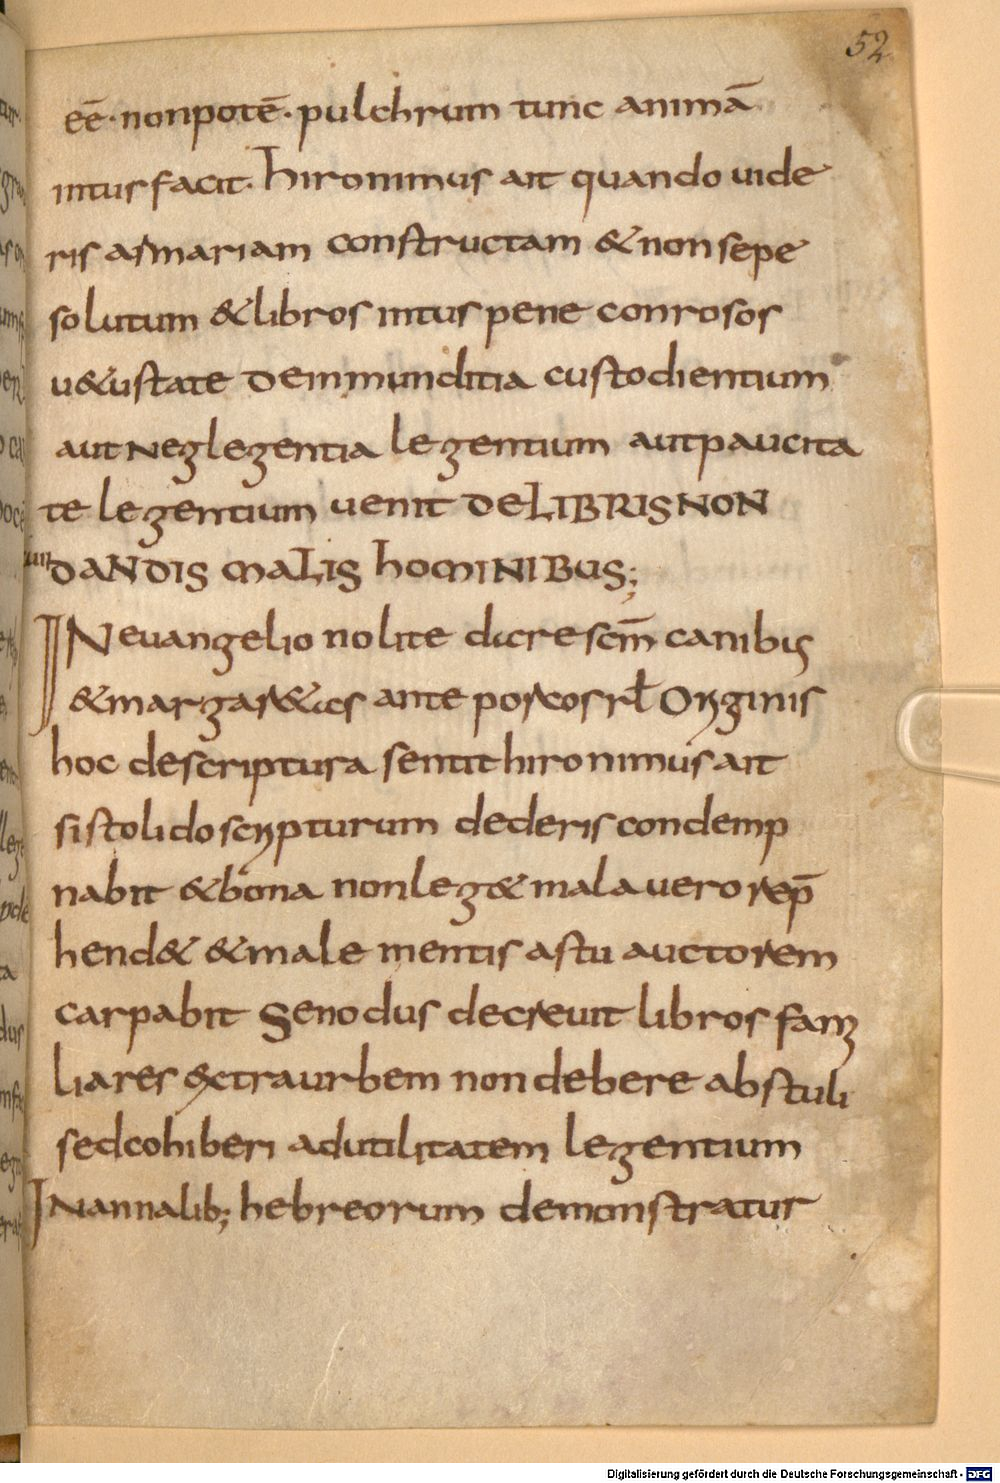 52
eē· non potē· pulchrum tunc animā
intus facit· hironimus ait quando uide
ris asmariam constructam & non sepe
solutum & libros intus pene conrosos
u&ustate deinmunditia custodientium
aut neglegentia legentium aut paucita
te legentium uenit DE LIBRIS NON
DANDIS MALIS HOMINIBUS;
IN euangelio nolite dicre scm̄ canibis
& margar&&es ante porcos rł Originis
hoc de scriptura sentit hironimus ait
si stolido scripturum dederis condemp
nabit & bona non leg& mala uero rep̄
hend& & male mentis astu auctorem
carpabit Senodus decreuit libros fami
liares extra urbem non debere abstuli
sed cohiberi ad utilitatem legentium
IN annalib; hebreorum demonstratur
Digitalisierung gefördert durch die Deutsche Forschungsgemeinschaft - DFG